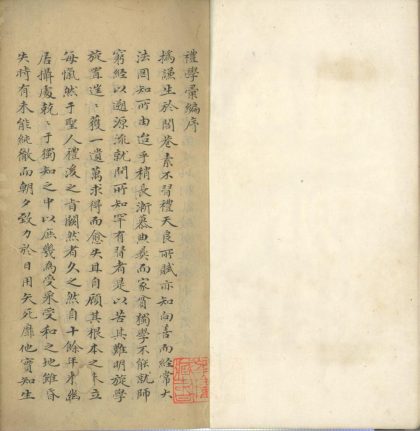 禮學彙編序
撝謙生於閭巷素不習禮天良所賦亦知向善而經常大
法罔知所由迨乎稍長漸慕典彝而家貧獨學不能就師
窮經以遡源流就問所知罕有習者是以苦其難明旋學
旋置遑〻獲一遺萬求得而愈失且自顧其根本之未立
每慨然于聖人禮後之旨闕然者久之然自十餘年來幽
居攝處兢〻于獨知之中以庶幾為受采受和之地雖昏
失時有未能純徹而朝夕致力於日用矢死靡他實知生